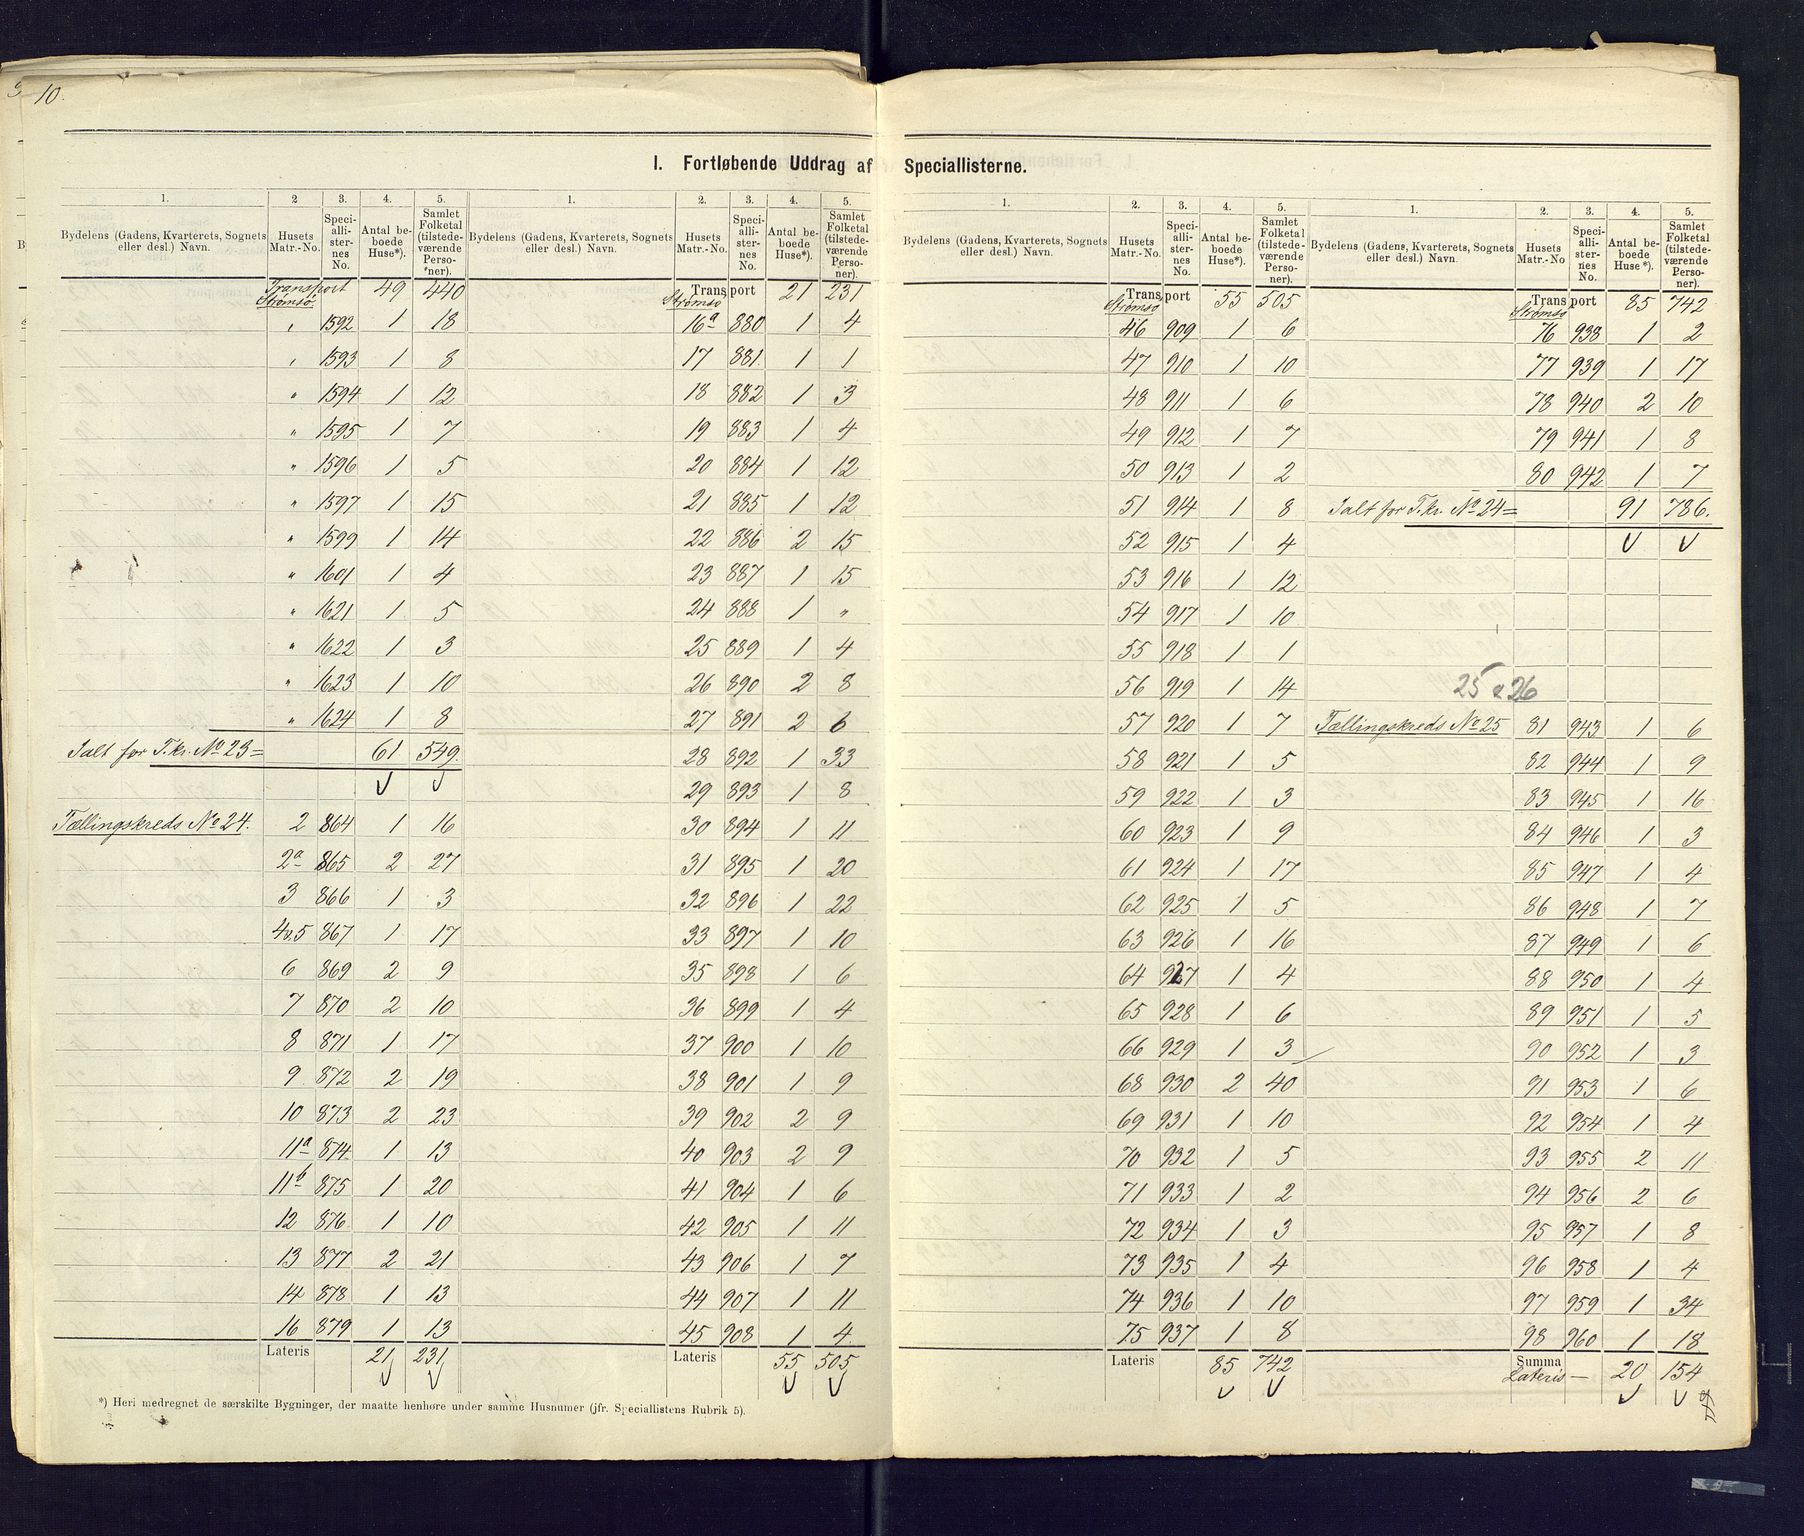 10.
I. Fortløbende Uddrag af Speciallisterne.
1. 2 3. 4. 5.
Bydelens (Gadens, Kvarterets, Sognets eller desl.) Navn. Husets Matr.-No. Speciallisternes No. Antal beboede Huse*). Samlet Folketal (tilstedeværende Personer).
Transport 49 440
Strømsø
" 1592 1 18
" 1593 1 8
" 1594 1 12
" 1595 1 7
" 1596 1 5
" 1597 1 15
" 1599 1 14
" 1601 1 4
" 1621 1 5
" 1622 1 3
" 1623 1 10
" 1624 1 8
Ialt for T.kr. No 23 = 61 549.
Tællingskreds No 24. 2 864 1 16
2a 865 2 27
3 866 1 3
4v.5 867 1 17
6 869 2 9
7 870 2 10
8 871 1 17
9 872 2 19
10 873 2 23
11a 874 1 13
11b 875 1 20
12 876 1 10
13 877 2 21
14 878 1 13
16 879 1 13
Lateris 21 231
*) Heri medregnet de særskilte Bygninger, der maatte henhøre under samme Husnumer (jfr. Speciallistens Rubrik 5).
1. 2. 3. 4. 5.
Bydelens (Gadens, Kvarterets, Sognets eller desl.) Navn. Husets Matr.-No. Speciallisternes No. Antal beboede Huse*). Samlet Folketal (tilstedeværende Personer).
Transport 21 231
Strømsø
16a 880 1 4
17 881 1 1
18 882 1 3
19 883 1 4
20 884 1 12
21 885 1 12
22 886 2 15
23 887 1 15
24 888 1 "
25 889 1 4
26 890 2 8
27 891 2 6
28 892 1 33
29 893 1 8
30 894 1 11
31 895 1 20
32 896 1 22
33 897 1 10
35 898 1 6
36 899 1 4
37 900 1 10
38 901 1 9
39 902 2 9
40 903 2 9
41 904 1 6
42 905 1 11
43 906 1 7
44 907 1 11
45 908 1 4
Lateris 55 505
1. 2. 3. 4. 5.
Bydelens (Gadens, Kvarterets, Sognets eller desl.) Navn. Husets Matr.-No. Speciallisternes No. Antal beboede Huse*). Samlet Folketal (tilstedeværende Personer).
Transport 55 505
Strømsø
46 909 1 6
47 910 1 10
48 911 1 6
49 912 1 7
50 913 1 2
51 914 1 8
52 915 1 4
53 916 1 12
54 917 1 10
55 918 1 1
56 919 1 14
57 920 1 7
58 921 1 5
59 922 1 3
60 923 1 9
61 924 1 17
62 925 1 5
63 926 1 16
64 927 1 4
65 928 1 6
66 929 1 3
68 930 2 40
69 931 1 10
70 932 1 5
71 933 1 2
72 934 1 3
73 935 1 4
74 936 1 10
75 937 1 8
Lateris 85 742
1. 2. 3. 4. 5.
Bydelens (Gadens, Kvarterets, Sognets eller desl.) Navn. Husets Matr.-No Speciallisternes No. Antal beboede Huse*). Samlet Folketal (tilstedeværende Personer).
Transport 85 742
Strømsø
76 938 1 2
77 939 1 17
78 940 2 10
79 941 1 8
80 942 1 7
Ialt for T.kr. No 24 = 91 786.
25 & 26
Tællingskreds No 25 81 943 1 6
82 944 1 9
83 945 1 16
84 946 1 3
85 947 1 4
86 948 1 7
87 949 1 6
88 950 1 4
89 951 1 5
90 952 1 3
91 953 1 6
92 954 1 4
93 955 2 11
94 956 2 6
95 957 1 8
96 958 1 4
97 959 1 34
98 960 1 18
Summa
Lateris — 20 154